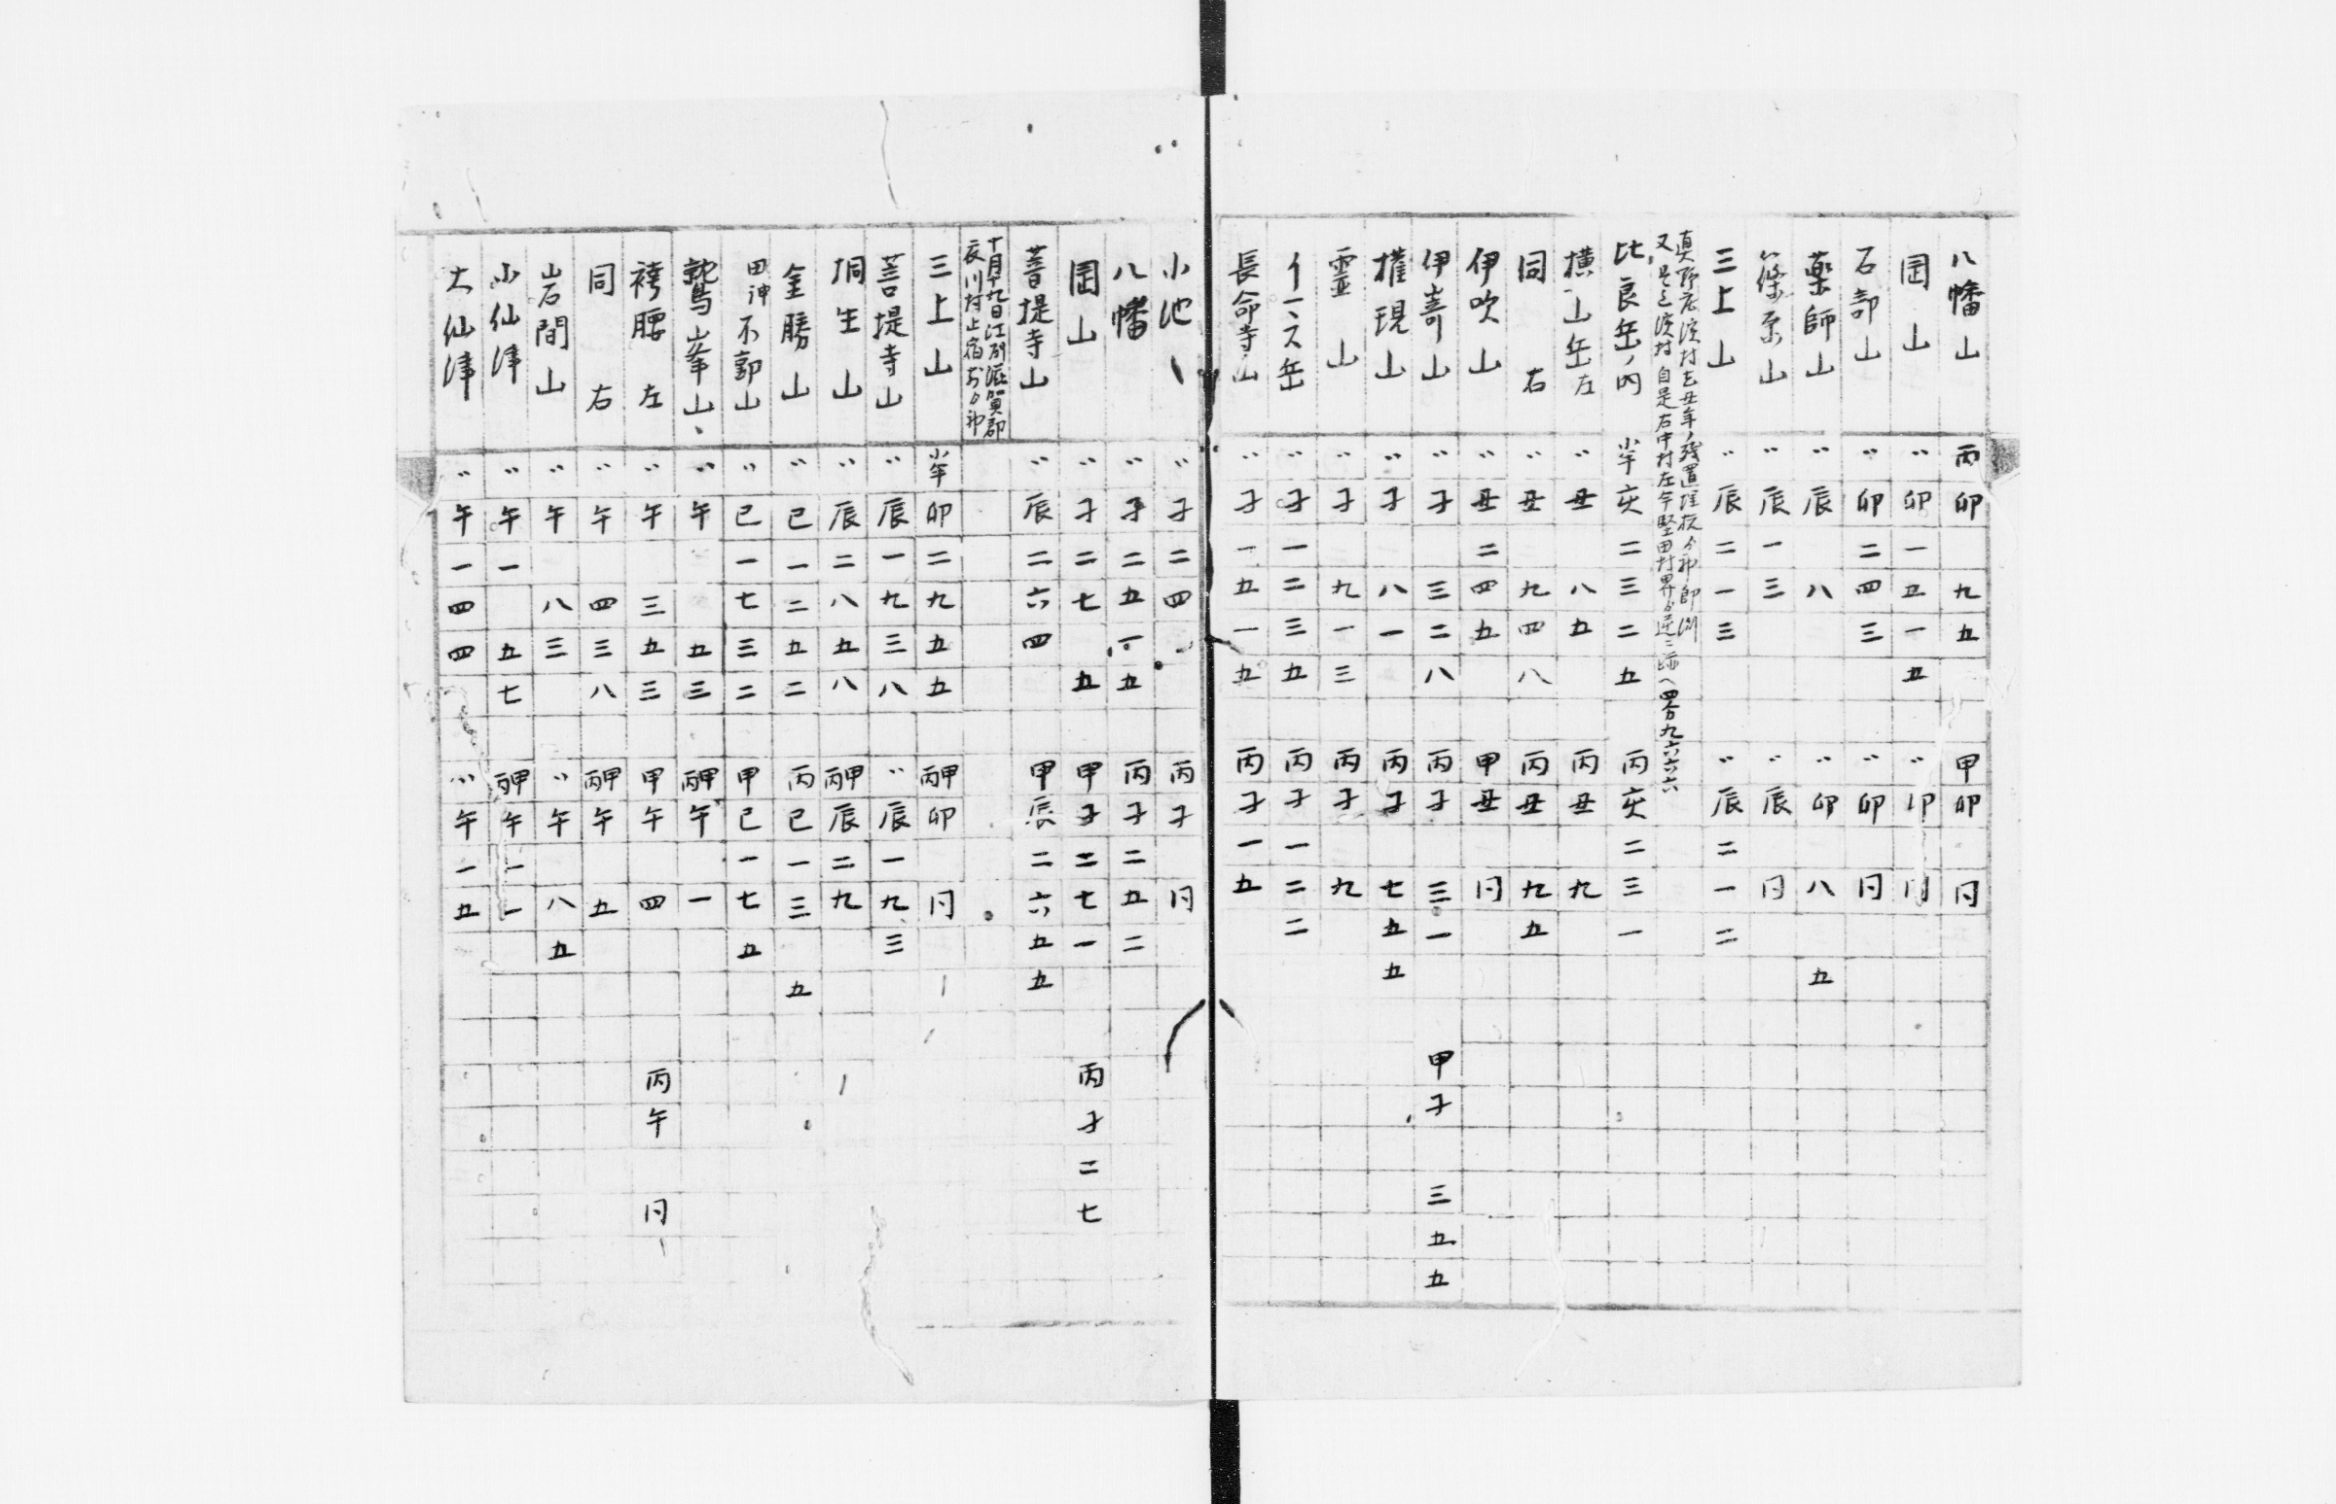 八幡山 丙卯九五 甲卯円
岡山 〃卯一五一五 〃卯円
石部山 〃卯二四三 〃卯円
薬師山 〃辰八 〃卯八五
篠原山 〃辰一三 〃辰円
三上山 〃辰二一三 〃辰二一二
比良岳ノ内 小半亥二三二五 丙亥二三一
横山岳左 〃丑八五 丙丑九
同右 〃丑九四八 丙丑九五
伊吹山 〃丑二四五 甲丑円
伊嵜山 〃子三二八 丙子三一 甲子三五五
權現山 〃子八一 丙子七五五
霊山 〃子九一三 丙子九
岳 〃子一二三五 丙子一二二
長命寺山 〃子一五一五 丙子一五
小池 〃子二四 丙子円
八幡 〃子二五一五 丙子二五二
岡山 〃子二七五 甲子二七一 丙子二七
菩提寺山 〃辰二六四 甲辰二六五五
十月十九日江州滋賀郡
衣川村止宿
三上山 小半卯二九五五 丙甲卯円
菩提寺山 〃辰一九三八 〃辰一九三
桐生山 〃辰二八五八 丙甲辰二九
金勝山 〃巳一二五二 丙巳一三五
田神不動山 〃巳一七三二 甲巳一七五
鷲峯山 〃午五三 丙甲午一
袴腰左 〃午三五三 甲午四 丙午円
同右 〃午四三八 丙甲午五
岩間山 〃午八三 〃午八五
小仙津 〃午一五七 丙甲午一一
大仙津 〃午一四四 〃午一五